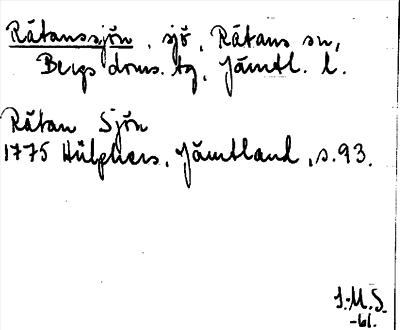 Rätanssjön, sjö, Rätans sn,
Bergs doms. tg, Jämtl. l.
Rätan Sjön
1775 Hülphers, Jämtland, s. 93.
J.M.S.
-61.